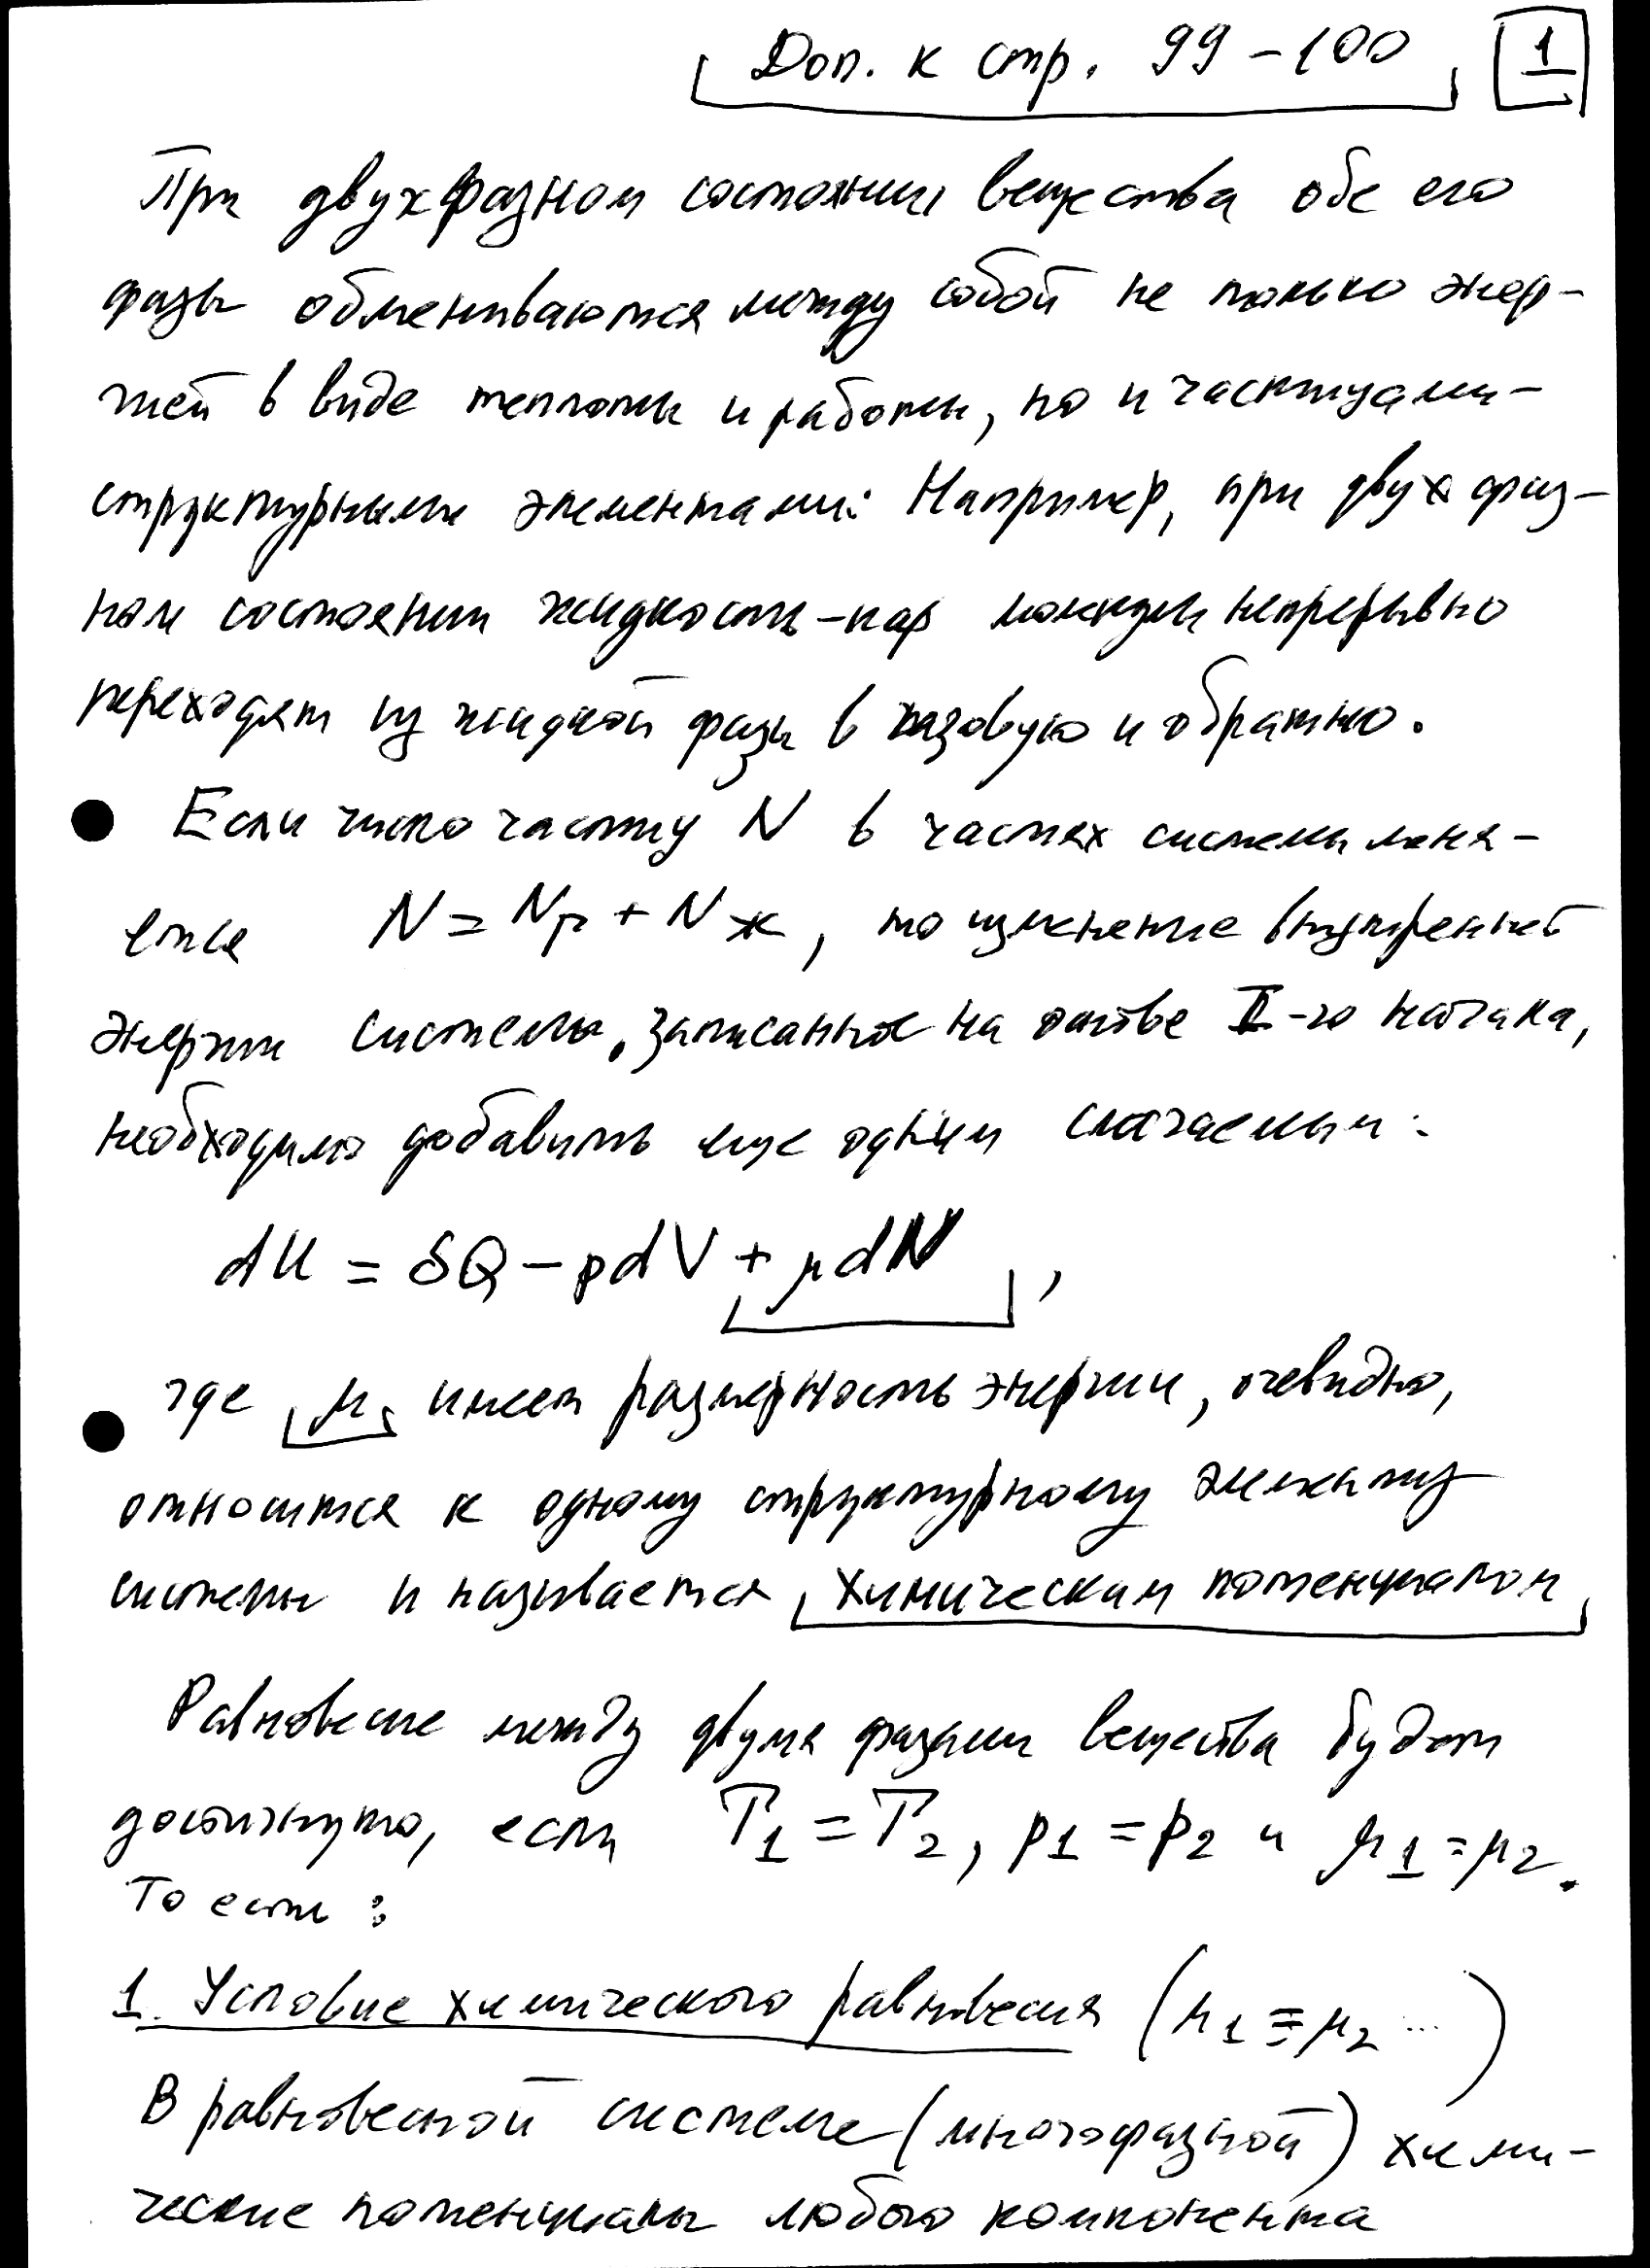 Доп. к стр. 99-100 1
При двухфазном состоянии вещества обе его
фазы обмениваются между собой не только энер-
гией в виде теплоты и работы, но и частицами-
структурными элементами: Например, при двухфаз-
ном состоянии жидкость-пар молекулы непрерывно
переходят из жидкой фазы в газовую и обратно.
● Если число частиц N в частях системы меня-
ется N = Nг + Nж, то изменение внутренней
энергии системы, записанное на основе I-го начала,
необходимо добавить еще одним слагаемым:
dU = δQ - pdV + μdN,
● где μ имеет размерность энергии, очевидно,
относится к одному структурному элементу
системы и называется химическим потенциалом
Равновесие между двумя фазами вещества будет
достигнуто, если T₁ = T₂, p₁ = p₂ и μ₁ = μ₂.
То есть:
1. Условие химического равновесия (μ₁ = μ₂ ...)
В равновесной системе (многофазной) хими-
ческие потенциалы любого компонента